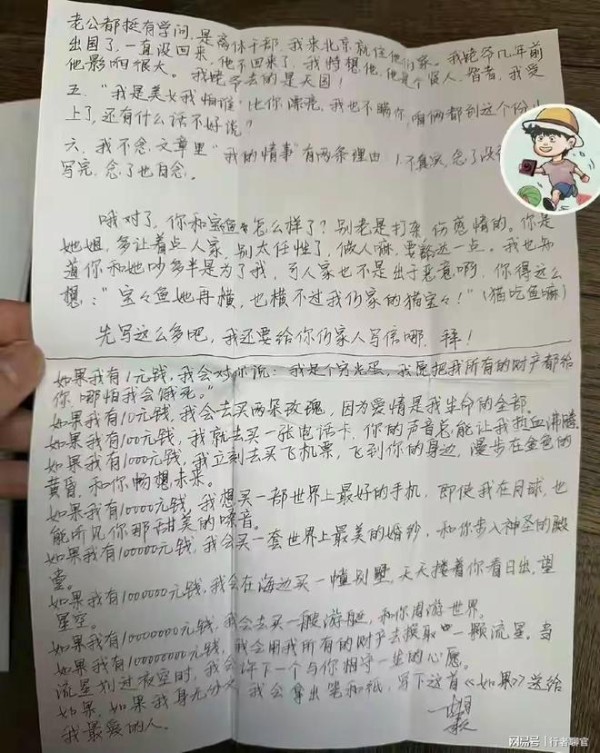 老公都挺有学问,是离休干部,我来北京就住他们家。我姥爷几年前
出国了,一直没回来,他不回来了,我特想他,他是个好人,智者,我受
他影响很大。我姥爷去的是天国!
五."我是美女我怕谁"比你漂亮,我也不瞒你,咱俩都到这个份儿
上了,还有什么话不好说"
六.我不念,文章里"我的情事"有两条理由 1.不真实,念了没
写完,念了也白念。
哦对了,你和宝鱼怎么样了?别老是打架,伤感情的。你是
她姐,多让着点人家,别太任性了,做人嘛,要豁达一点。我也知
道你和她吵多半是为了我,可人家也不是出于恶意啊,你得这么
想:"宝宝鱼她再横,也横不过我们家的猫宝宝!"(猫吃鱼嘛)
先写这么多吧,我还要给你们家人写信哪,拜!
如果我有1元钱,我会对你说:我是个穷光蛋,我愿把我所有的财产都给
你,哪怕我会饿死。"
如果我有10元钱,我会去买两朵玫瑰,因为爱情是我生命的全部。
如果我有100元钱,我就去买一张电话卡,你的声音总能让我热血沸腾。
如果我有1000元钱,我立刻去买飞机票,飞到你的身边,漫步在金色的
黄昏,和你畅想未来。
如果我有10000元钱,我想买一部世界上最好的手机,即使我在月球,也
能听见你那甜美的嗓音。
如果我有100000元钱,我会买一套世界上最美的婚纱,和你步入神圣的殿
堂。
如果我有1000000元钱,我会在海边买一幢别墅,天天搂着你看日出,望
星空。
如果我有10000000元钱,我会去买一艘游艇,和你周游世界。
如果我有100000000元钱,我会用我所有的财产去换取一颗流星,当
流星划过夜空时,我会许下一个与你相守一生的心愿。
如果,如果我身无分文,我会拿出笔和纸,写下这首《如果》送给
我最爱的人。
搜狐号@行者聊官